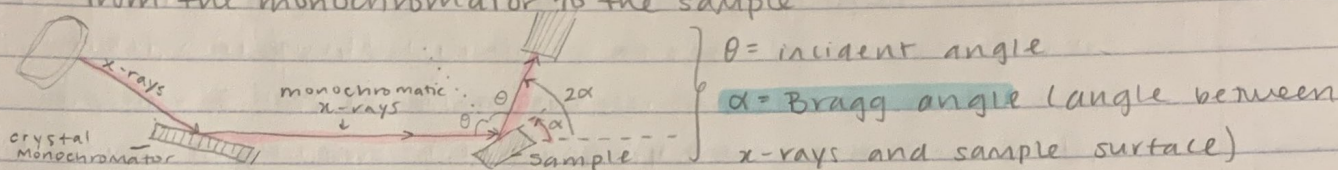 from the monochromator to the sample
x-rays
monochromatic
x-rays
θ
2α
θ
α
crystal
monochromator
sample
θ = incident angle
α = Bragg angle (angle between
x-rays and sample surface)